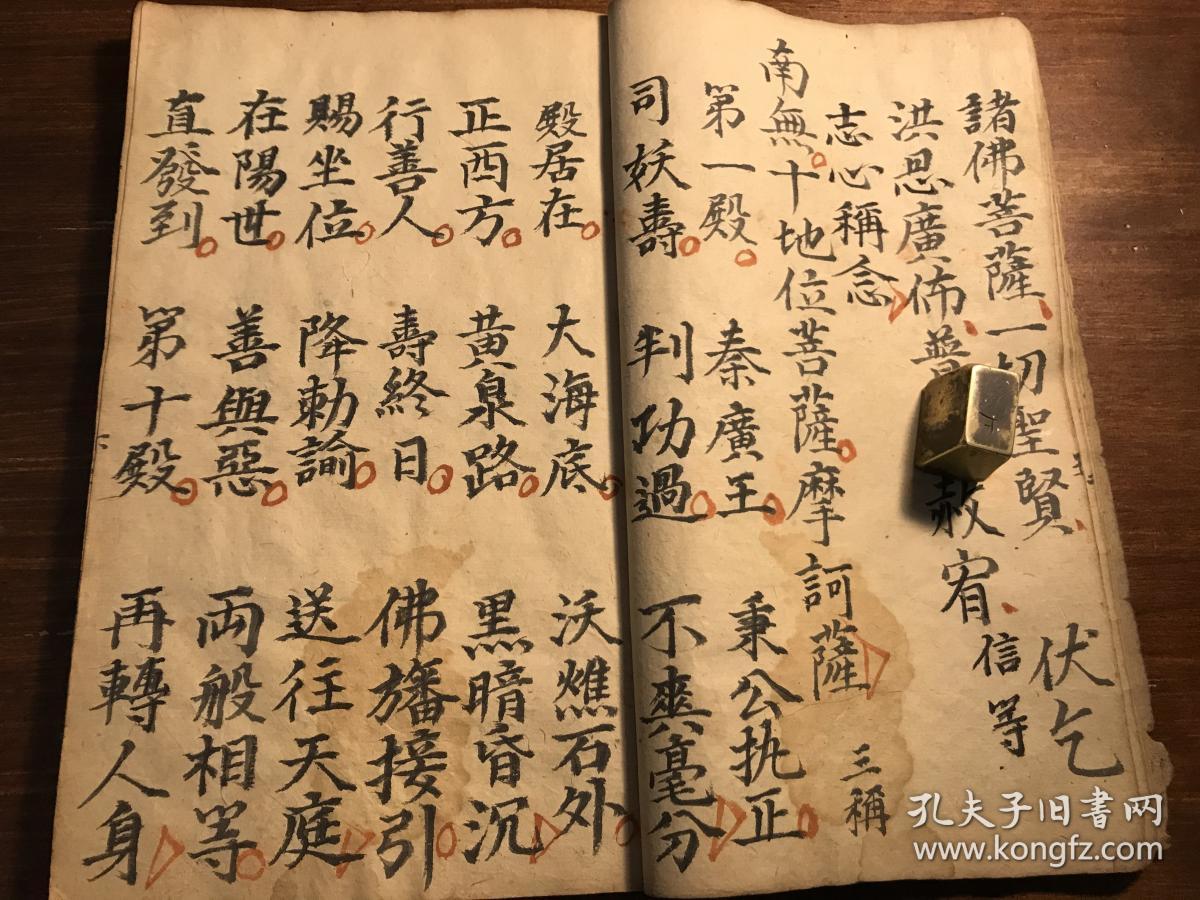 諸佛菩薩一切聖賢 伏乞
洪恩廣佈普 赦宥信等
志心稱念
南無十地位菩薩摩訶薩 三稱
第一殿 秦廣王 秉公执正
司妖壽 判功過 不爽毫分
殿居在 大海底 沃燋石外
正西方 黄泉路 黑暗昏沉
行善人 壽終日 佛旛接引
賜坐位 降勅諭 送往天庭
在陽世 善與惡 両般相等
直發到 第十殿 再轉人身
孔夫子旧书网
www.kongfz.com